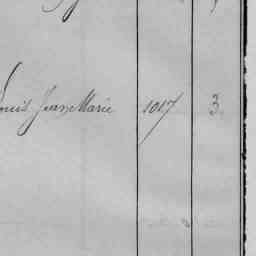 Louis Jean Marie 1017 3